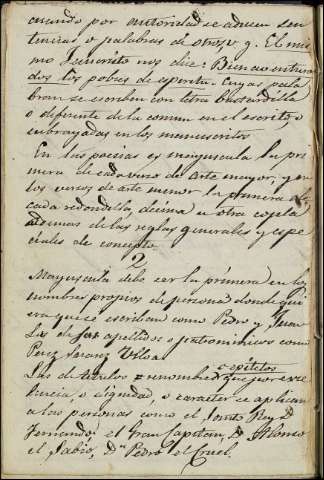 cuando por autoridad se aducen sen
tencias o palabras de otros, v. g. El mis
mo Jesucristo nos dice: Bienaventura
dos los pobres de espiritu. Cuyas pala
bras se escriben con letra bastardilla
o diferente de la comun en el escrito, o
subrayadas en los manuscritos
En las poesias es mayuscula la pri
mera de cada verso de arte mayor, y en
los versos de arte menor la primera de
cada redondilla, decima u otra copla
ademas de las reglas generales y espe
ciales de concepto.
2
Mayuscula debe ser la primera en los
nombres propios de persona donde qui
era que se escriban como Pedro y Juan
Los de apellidos o patronimicos como
Perez Suarez Ulloa.
o epitetos
Los de titulos renombres que por exce
lencia o dignidad, o caracter se aplican
a las personas como el Santo Rey D.
Fernando, el Gran Capitan, D. Alonso
el Sabio, Dn Pedro el Cruel.